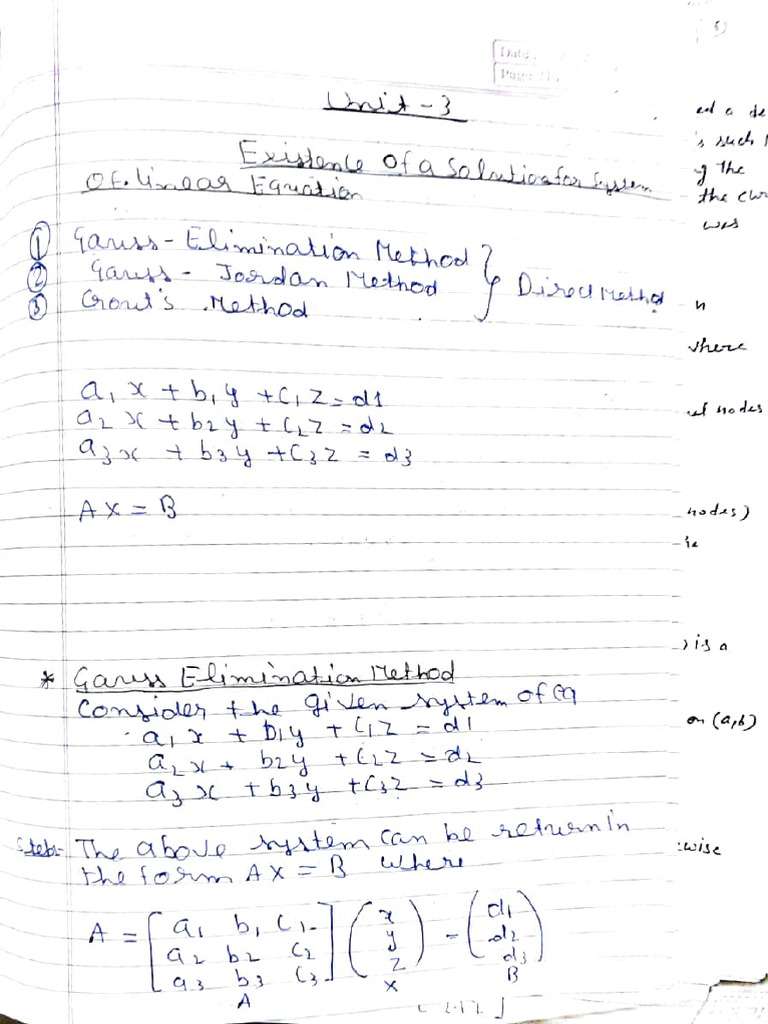 Date
Page
Unit - 3
Existence of a Solution for System
Of. linear Equation
① Gauss - Elimination Method
② Gauss - Jordan Method } Direct Method
③ Crout's Method
a₁x + b₁y + c₁z = d1
a₂x + b₂y + c₂z = d₂
a₃x + b₃y + c₃z = d₃
AX = B
* Gauss Elimination Method
Consider the given system of Eq
a₁x + b₁y + c₁z = d₁
a₂x + b₂y + c₂z = d₂
a₃x + b₃y + c₃z = d₃
Step:- The above system can be return in
the form AX = B where
A = [ a₁ b₁ c₁ ] ( x ) - ( d₁ )
a₂ b₂ c₂ y d₂
a₃ b₃ c₃ z d₃
A X B
ed a de
's such
g the
the cur
was
n
where
of nodes
nodes)
is
) is a
on (a,b)
:wise